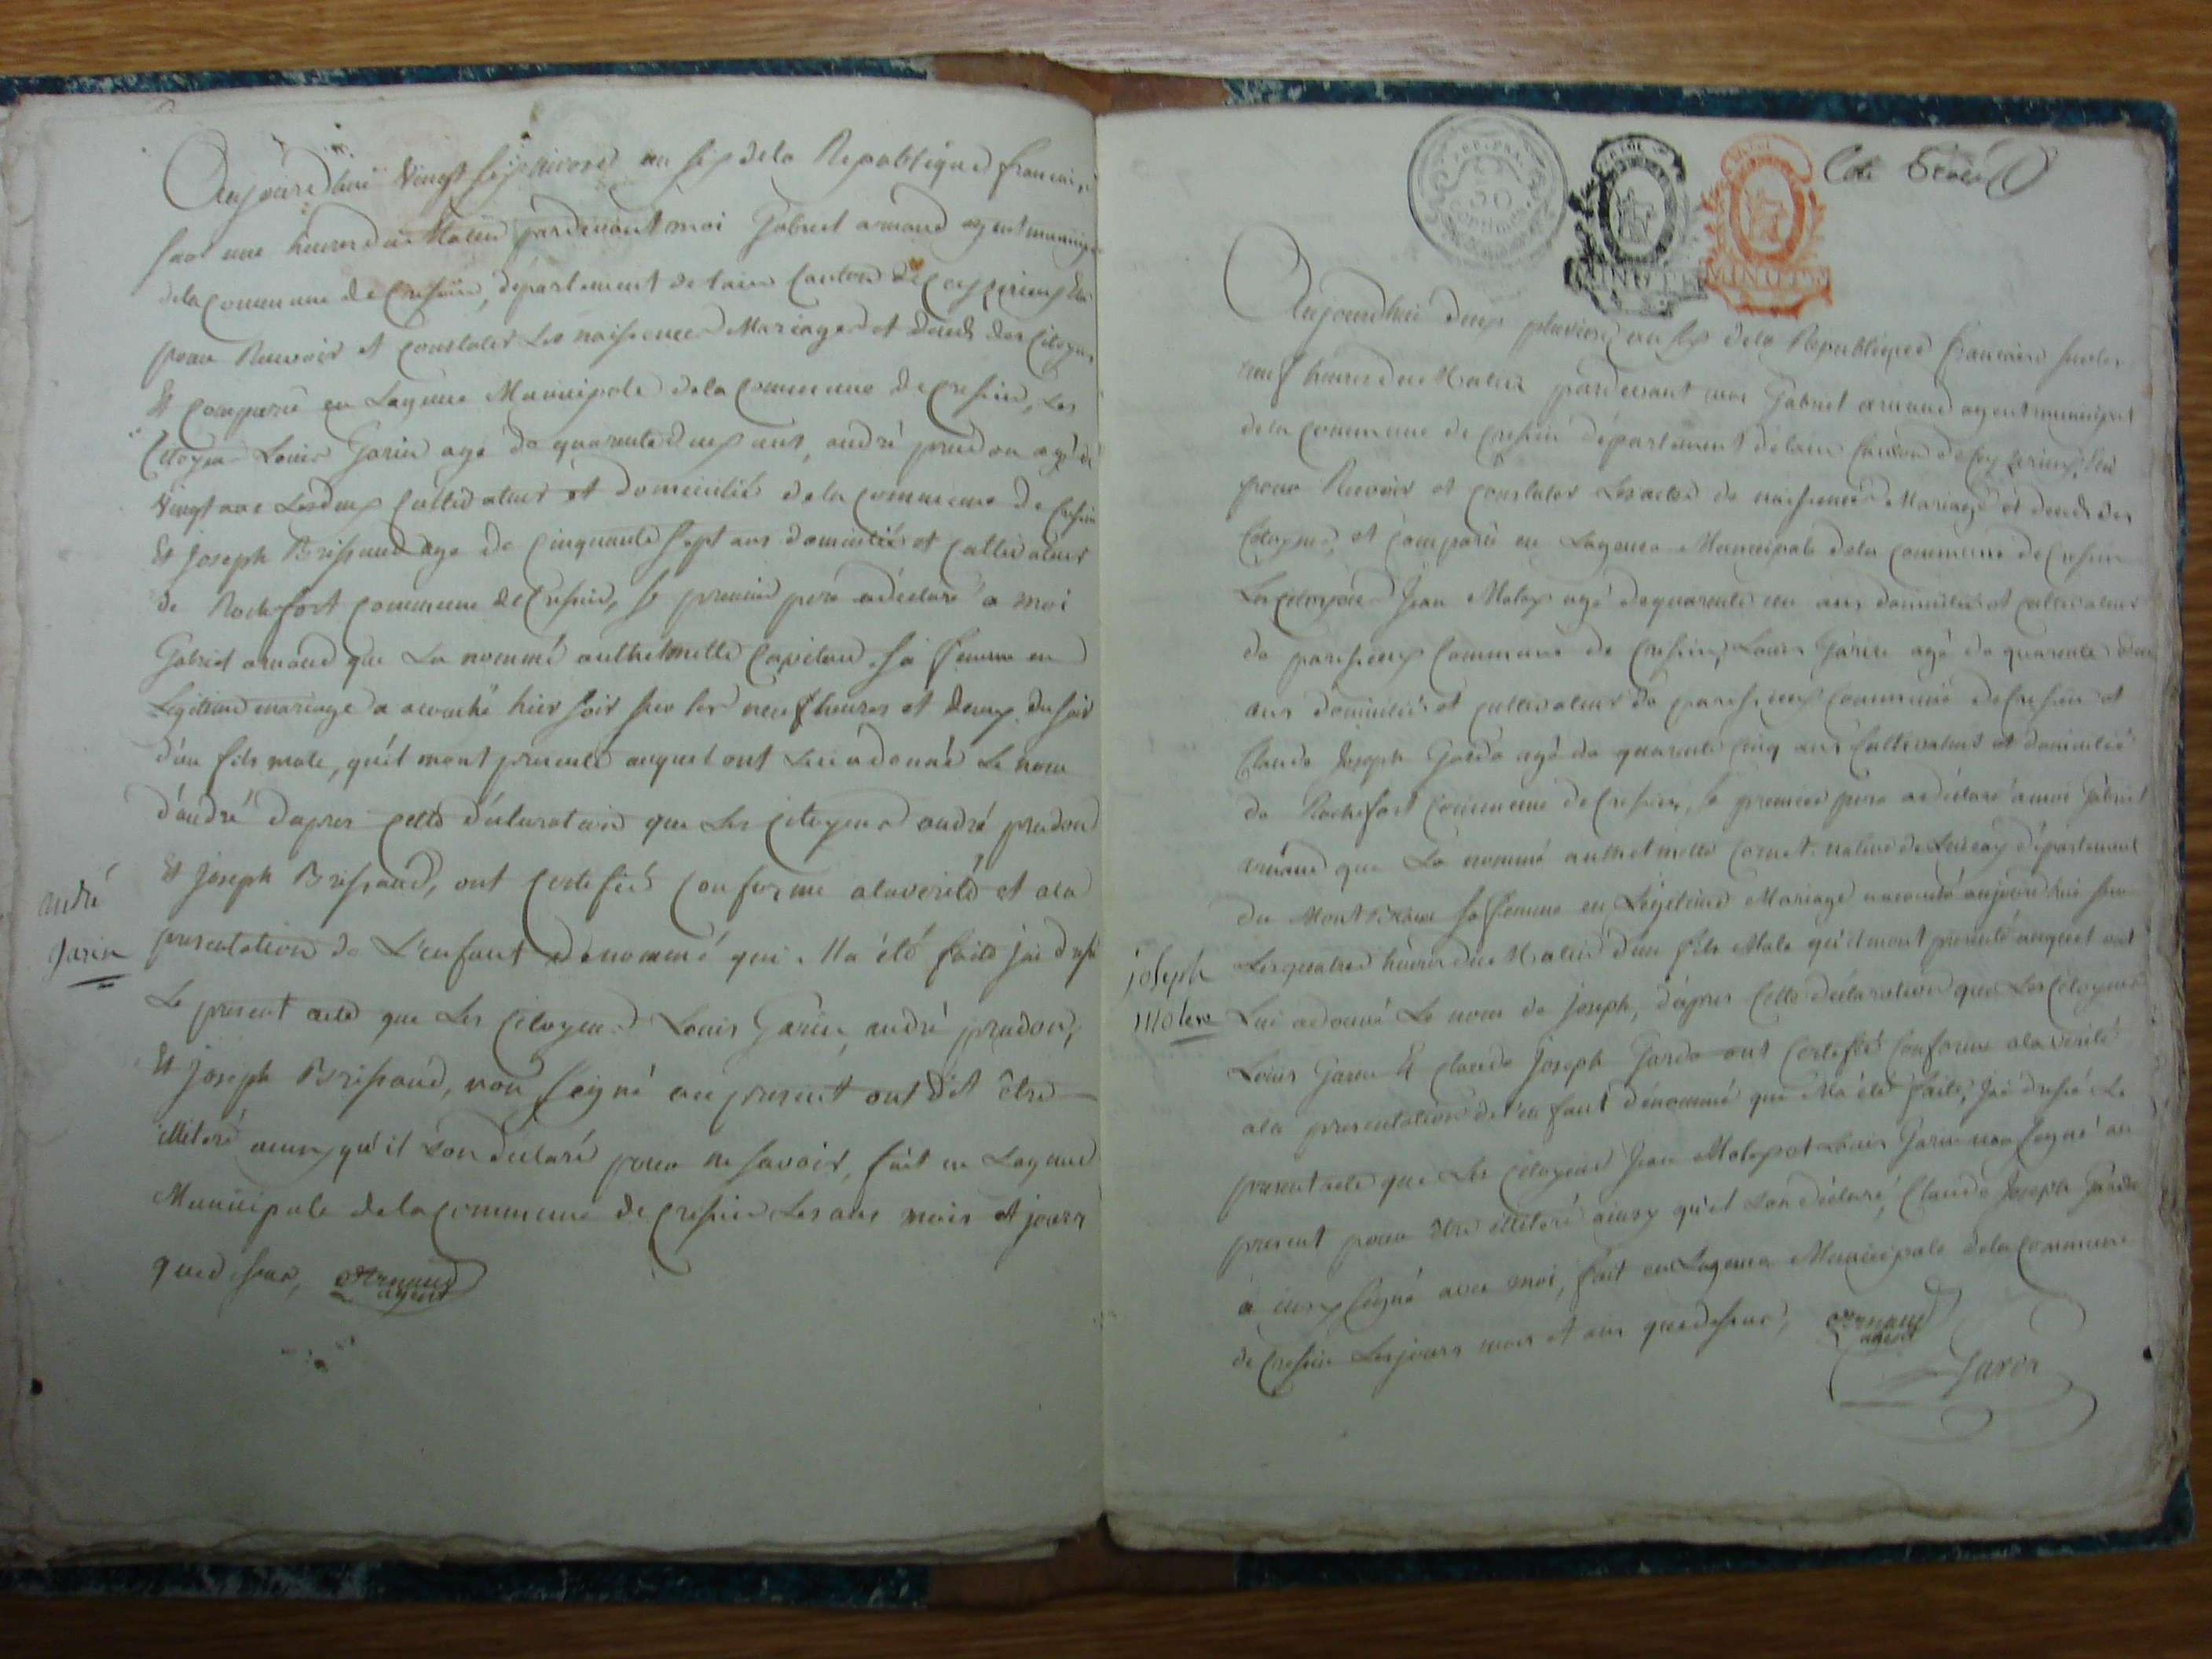 Aujourdhui Vingt six nivose an six dela Republique francaise
sur une heures du Matin pardevant moi Gabriel arnaud agent municipal
dela Commune de Cressin, département de lain Canton de Ceyzerieux Elu
pour Recevoir et Constater Les naissences Mariages et deces des Citoyens
Et Comparu en Lagence Municipale dela Commune de Cressin, Les
Citoyens Louis Garin agé de quarente deux ans, andré prudon agé de
Vingt ans Lesdeux Cultivateur et domicilié dela Commune de Cressin
Et Joseph Brissaud age de Cinquante Sept ans domicilié et Cultivateur
de Rochefort Commune de Cressin, le premier pere a déclaré a moi
Gabriel arnaud que La nommé anthelmette sa femme en
Legitime mariage a acouché hier soir sur les neuf heures et demy du soir
d'un fils male, qu'il mont presenté auquel ont Lui a donné Le nom
d'andré dapres Cette déclaration que Les Citoyens andré prudon
Et Joseph Brissaud, ont Certifié Conforme alaverité et ala
presentation de L'enfant denommé qui Ma été faite jai dressé
Le present acte que Les Citoyens Louis Garin, andré prudon,
Et Joseph Brissaud, non Seigné au present ont dit être
illiteré ainsy qu'il Lon déclaré pour ne savoir, fait en Lagence
Municipale dela Commune de Cressin Les ans mois et jours
que dessus, Arnaud
agent
andré
Garin
50
MINUTE
MINUTE
Aujourdhui deux pluviose an six dela Republique francaise sur les
neuf heures du Matin pardevant moi Gabriel arnaud agent municipal
dela Commune de Cressin département delain Canton de Ceyzerieux Elu
pour Recevoir et Constater Les actes de naissence Mariage et deces des
Citoyens, et Comparu en Lagence Municipale dela Commune de Cressin
Les Citoyens Jean agé de quarente un ans domicilié et Cultivateur
de parissieux Commune de Cressin, Louis Garin agé de quarente deux
ans domicilié et Cultivateur de parissieux Commune de Cressin et
Claude Joseph Garda agé de quarente Cinq ans Cultivateur et domicilié
de Rochefort Commune de Cressin, le premier pere a déclaré a moi Gabriel
arnaud que La nommé anthelmette Cornet native de département
du Mont Blanc sa femme en Légitime Mariage a acouché aujourdhui sur
Les quatres heures du Matin d'un fils Male qu'il mont presenté auquel ont
Lui a donné Le nom de Joseph, d'apres Cette déclaration que Les Citoyens
Louis Garin Et Claude Joseph Garda ont Certifié Conforme ala verité
ala presentation de L'enfant dénommé qui Ma été faite, Jai dressé Le
present acte que Les Citoyens Jean et Louis Garin non Segné au
present pour être illiteré ainsy qu'il Lon déclaré, Claude Joseph Garda
a ainsy Segné avec moi, fait en Lagence Municipale dela Commune
de Cressin Les jours mois et ans que dessus, Arnaud
agent
joseph